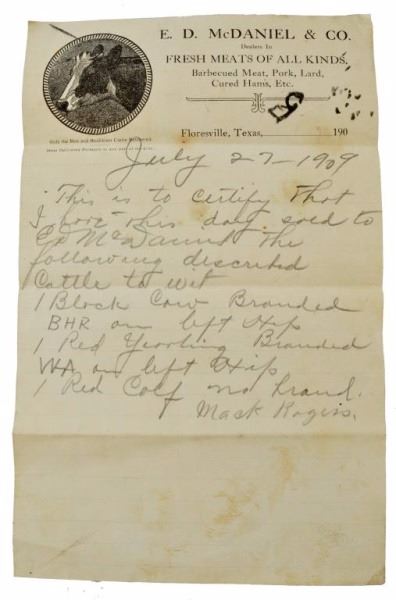 E. D. McDANIEL & CO.
Dealers In
FRESH MEATS OF ALL KINDS.
Barbecued Meat, Pork, Lard,
Cured Hams, Etc.
Only the Best and Healthiest Cattle Butchered.
Floresville, Texas, 190
July 27-1909
This is to certify That
I have this day sold to
McDaniel the
following discribed
Cattle to wit
1 Black Cow Branded
BHR on left Hip
1 Red Yearling Branded
WA on left Hip
1 Red Calf no brand.
Mack Rogers.